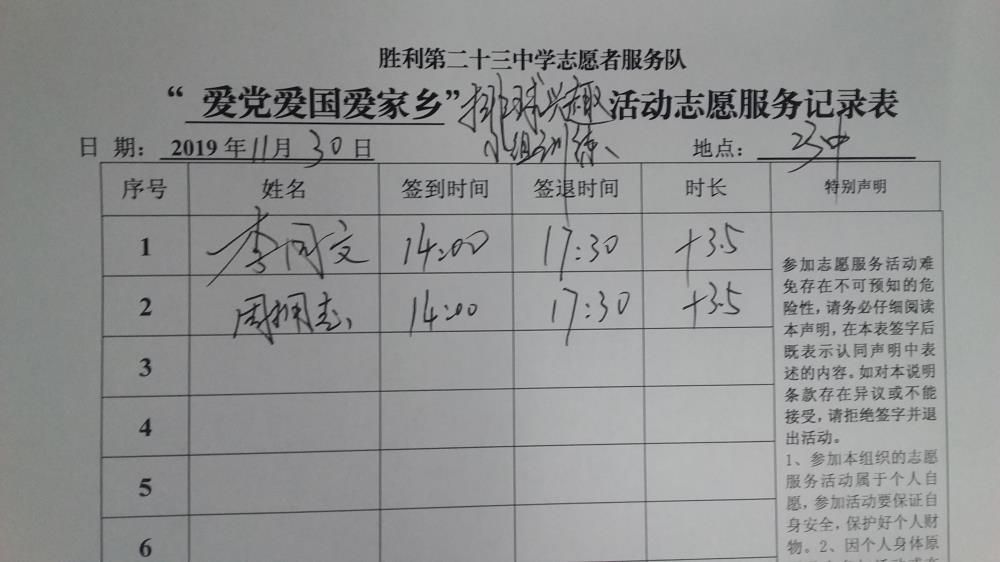 胜利第二十三中学志愿者服务队
“ 爱党爱国爱家乡”排球兴趣活动志愿服务记录表
小组训练
日 期: 2019 年11月 30日 地点: 23中
序号 姓名 签到时间 签退时间 时长 特别声明
1 李同文 14:00 17:30 +3.5
2 周拥志 14:00 17:30 +3.5
3
4
5
6
参加志愿服务活动难
免存在不可预知的危
险性,请务必仔细阅读
本声明,在本表签字后
既表示认同声明中表
述的内容。如对本说明
条款存在异议或不能
接受,请拒绝签字并退
出活动。
1、参加本组织的志愿
服务活动属于个人自
愿,参加活动要保证自
身安全,保护好个人财
物。2、因个人身体原